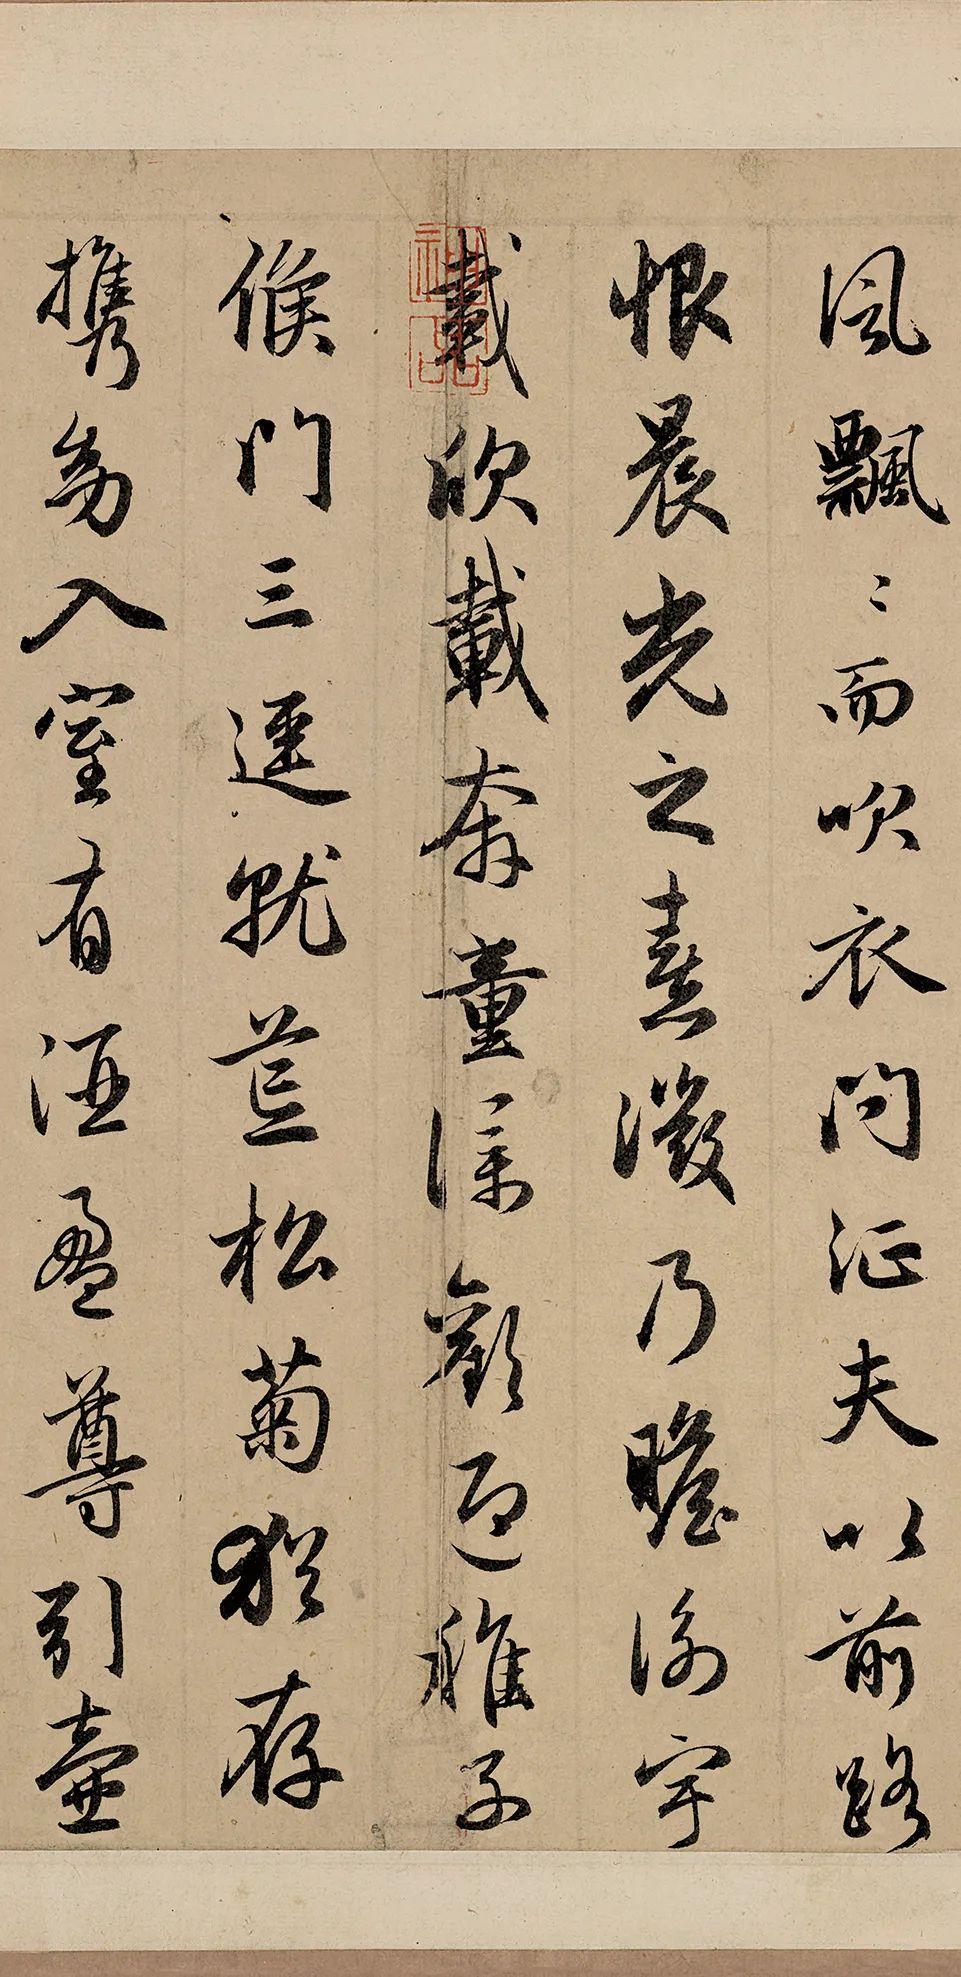 風飄〻而吹衣問征夫以前路
恨晨光之熹微乃瞻衡宇
載欣載奔童僕歡迎稚子
候門三逕就荒松菊猶存
携幼入室有酒盈尊引壺